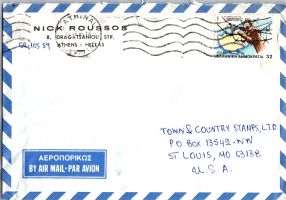 ΑΘΗΝΑΙ
NICK ROUSSOS
8, DRAGATSANIOU, STR.
GR-105 59 ATHENS - HELLAS
ΕΛΛΗΝΙΚΗ ΔΗΜΟΚΡΑΤΙΑ 32
TOWN & COUNTRY STAMPS, LTD.
P.O. BOX 13542-NW
ST. LOUIS, MO 63138
U.S.A.
ΑΕΡΟΠΟΡΙΚΩΣ
BY AIR MAIL - PAR AVION